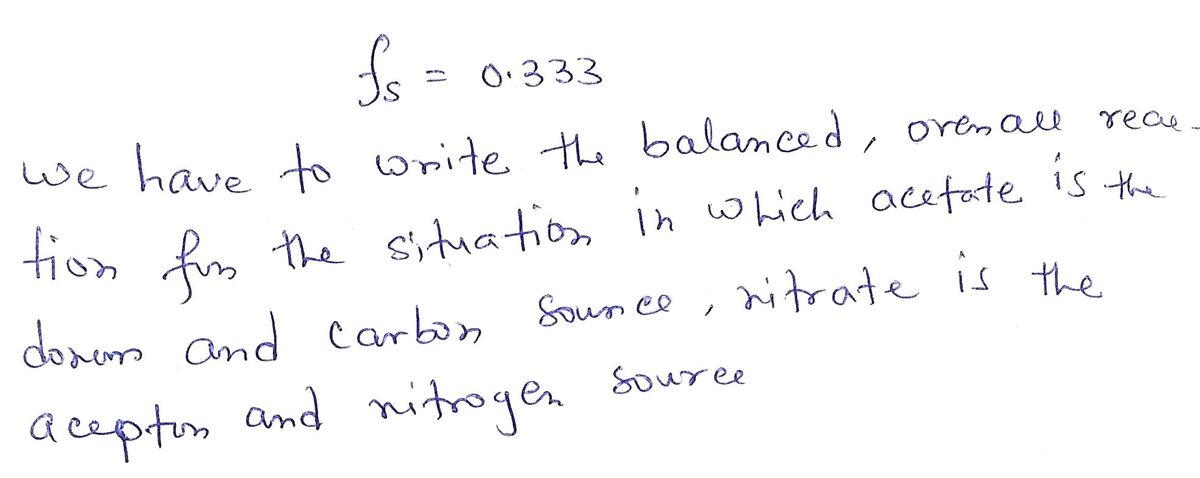 fs = 0.333
we have to write the balanced, overall reac-
tion for the situation in which acetate is the
donor and carbon source, nitrate is the
aceptor and nitrogen source